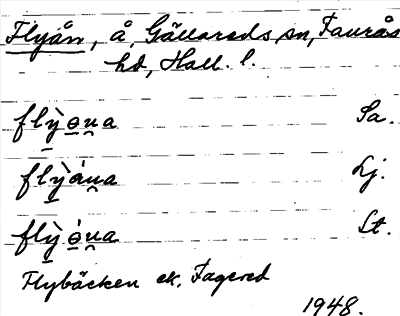 Flyån, å, Gällareds sn, Faurås
hd, Hall. l.
flỳ̲ o̲n̯a Sa.
flỳ̲ án̯a Lj.
flỳ̲ ó̲n̯a St.
Flybäcken ek. Fagered
1948.